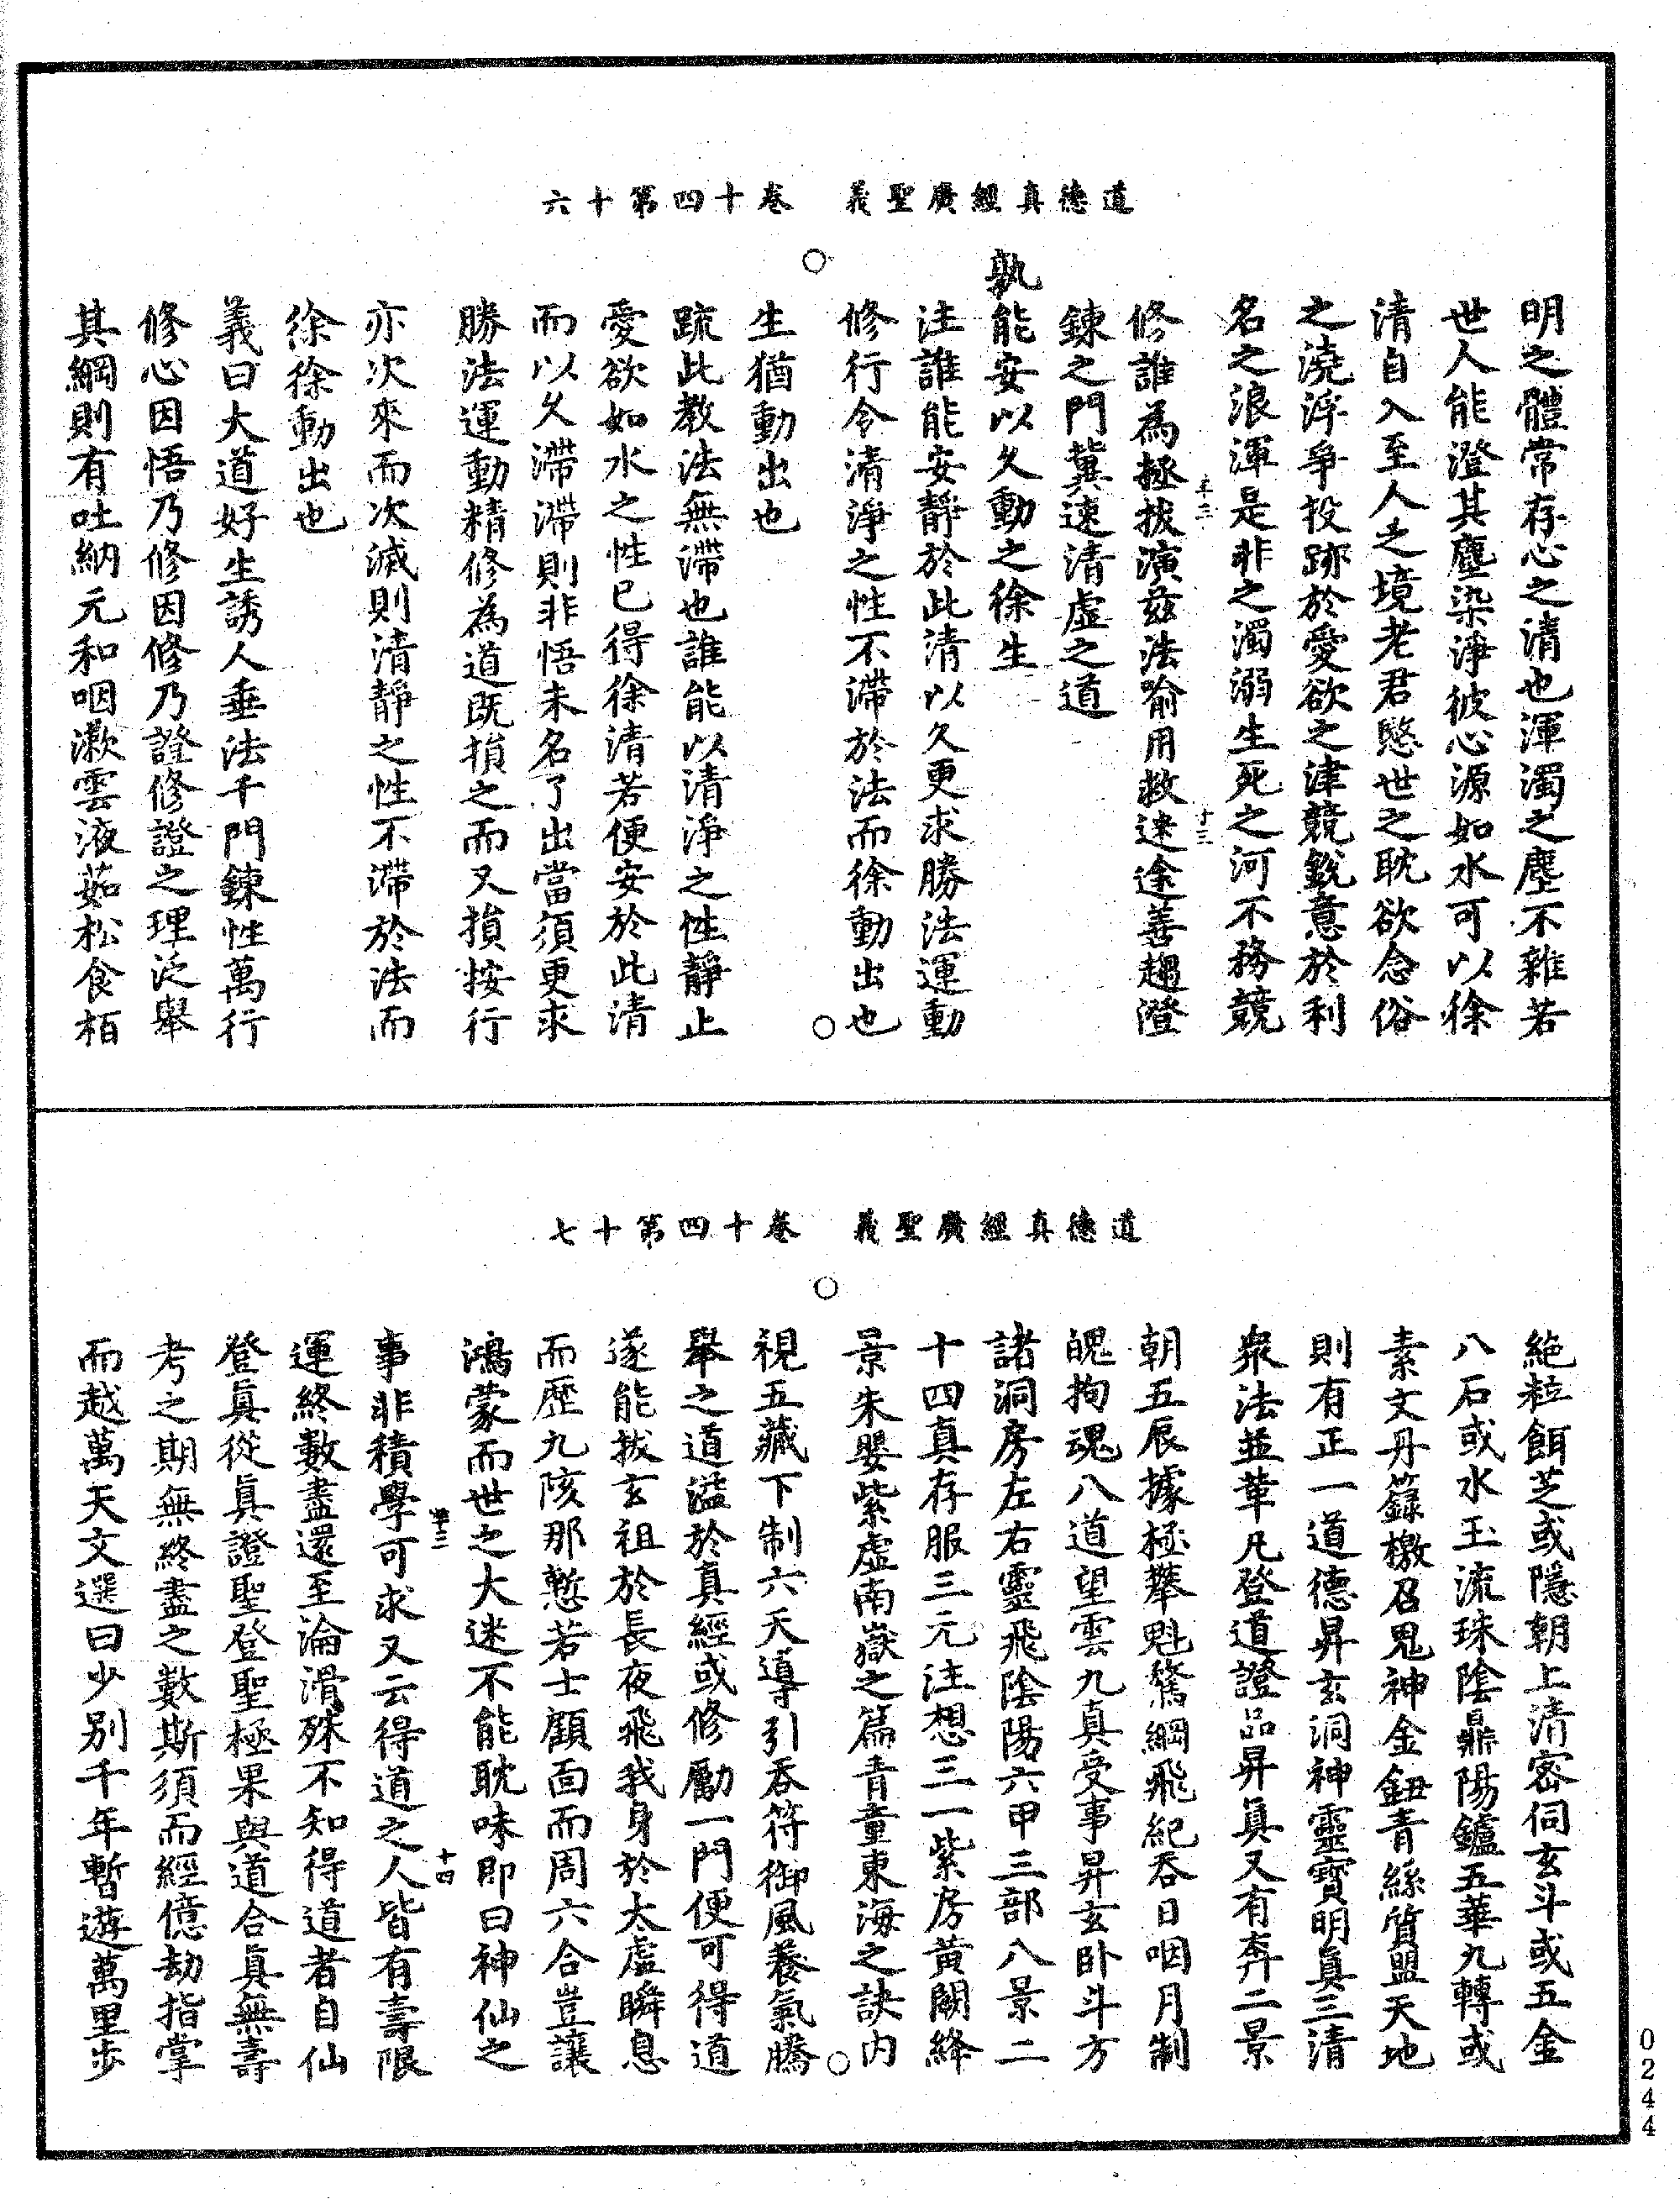 道德真經廣聖義　卷十四第十六
明之體常存心之清也渾濁之塵不雜若
世人能澄其塵染淨彼心源如水可以徐
清自入至人之境老君愍世之耽欲念俗
之澆浮爭投跡於愛欲之津競銳意於利
名之浪渾是非之濁溺生死之河不務競
修誰為拯拔演茲法喻用救迷途善趨澄
十三
鍊之門冀速清虛之道
孰能安以久動之徐生
注誰能安靜於此清以久更求勝法運動
修行令清淨之性不滯於法而徐動出也
生猶動出也
疏此教法無滯也誰能以清淨之性靜止
愛欲如水之性已得徐清若便安於此清
而以久滯滯則非悟未名了出當須更求
勝法運動精修為道既損之而又損按行
亦次來而次滅則清靜之性不滯於法而
徐徐動出也
義曰大道好生誘人垂法千門鍊性萬行
修心因悟乃修因修乃證修證之理泛舉
其綱則有吐納元和咽漱雲液茹松食栢
道德真經廣聖義　卷十四第十七
絕粒餌芝或隱朝上清密伺玄斗或五金
八石或水玉流珠陰鼎陽鑪五華九轉或
素文丹籙檄召鬼神金鈕青絲質盟天地
則有正一道德昇玄洞神靈寶明真三清
眾法並華凡登道證品昇真又有奔二景
朝五辰據極攀魁騖綱飛紀吞日咽月制
魄拘魂八道望雲九真受事昇玄卧斗方
諸洞房左右靈飛陰陽六甲三部八景二
十四真存服三元注想三一紫房黃闕絳
景朱嬰紫虛南嶽之篇青童東海之訣內
視五藏下制六天導引吞符御風養氣騰
舉之道溢於真經或修勵一門便可得道
遂能拔玄祖於長夜飛我身於太虛瞬息
而歷九陔那慙若士顧面而周六合豈讓
鴻蒙而世之大迷不能耽味即曰神仙之
十四
事非積學可求又云得道之人皆有壽限
運終數盡還至淪滑殊不知得道者自仙
登真從真證聖登聖極果與道合真無壽
考之期無終盡之數斯須而經億劫指掌
而越萬天文選曰少別千年暫遊萬里步
0244